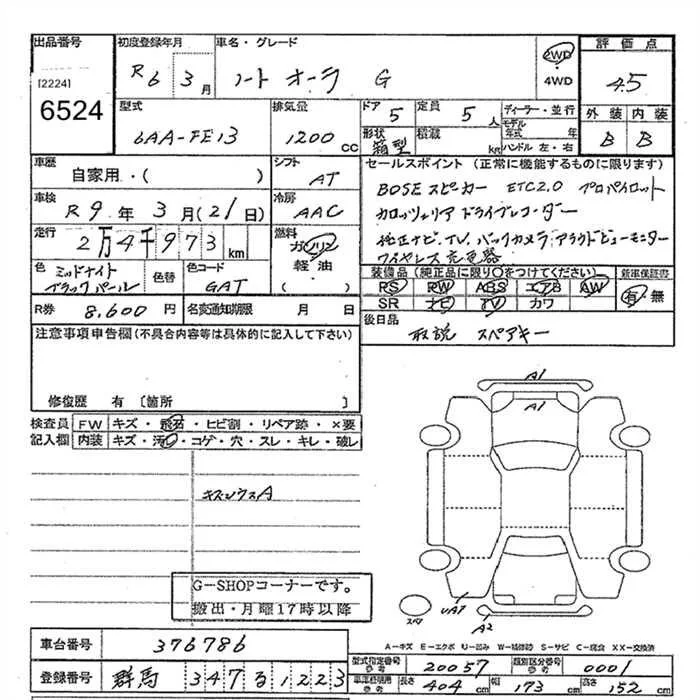 出品番号 初度登録年月 車名・グレード 評価点
[2224] R6 3月 ノート オーラ G 2WD 4WD 4.5
6524
型式 排気量 ドア 5 定員 5人 ディーラー・並行 外装 内装
6AA-FE13 1200cc 形状 箱型 積載 モデル年式 年 B B
ハンドル 左・右
車歴 自家用・( ) シフト AT セールスポイント (正常に機能するものに限ります)
車検 R9年3月(21日) 冷房 AAC BOSEスピーカー ETC2.0 プロパイロット
カロッツェリア ドライブレコーダー
走行 2万4千973km 燃料 ガソリン 軽油・( ) 純正ナビ、TV、バックカメラ、アラウンドビューモニター
ワイヤレス充電器
色 ミッドナイトブラックパール 色替 色コード GAT 装備品 (純正品に限り○をつけてください) 新車保証書
PS PW ABS エアB AW 有・無
SR ナビ TV カワ
R券 8,600円 名変通知期限 月 日 後日品 取説 スペアキー
注意事項申告欄(不具合内容等は具体的に記入して下さい)
修復歴 有 〔箇所 〕
検査員記入欄 FW キズ・飛石・ヒビ割・リペア跡・×要
内装 キズ・汚・コゲ・穴・スレ・キレ・破レ
A1
A1
キズシウスA
G-SHOPコーナーです。
搬出・月曜17時以降
スペア UA1
A2
A-キズ E-エクボ U-凹み W-補修跡 S-サビ C-腐食 XX-交換済
車台番号 376786 型式指定番号 参考 20057 類別区分番号 参考 0001
登録番号 群馬 347 る 1223 車体寸法 参考 長さ 404cm 幅 173cm 高さ 152cm